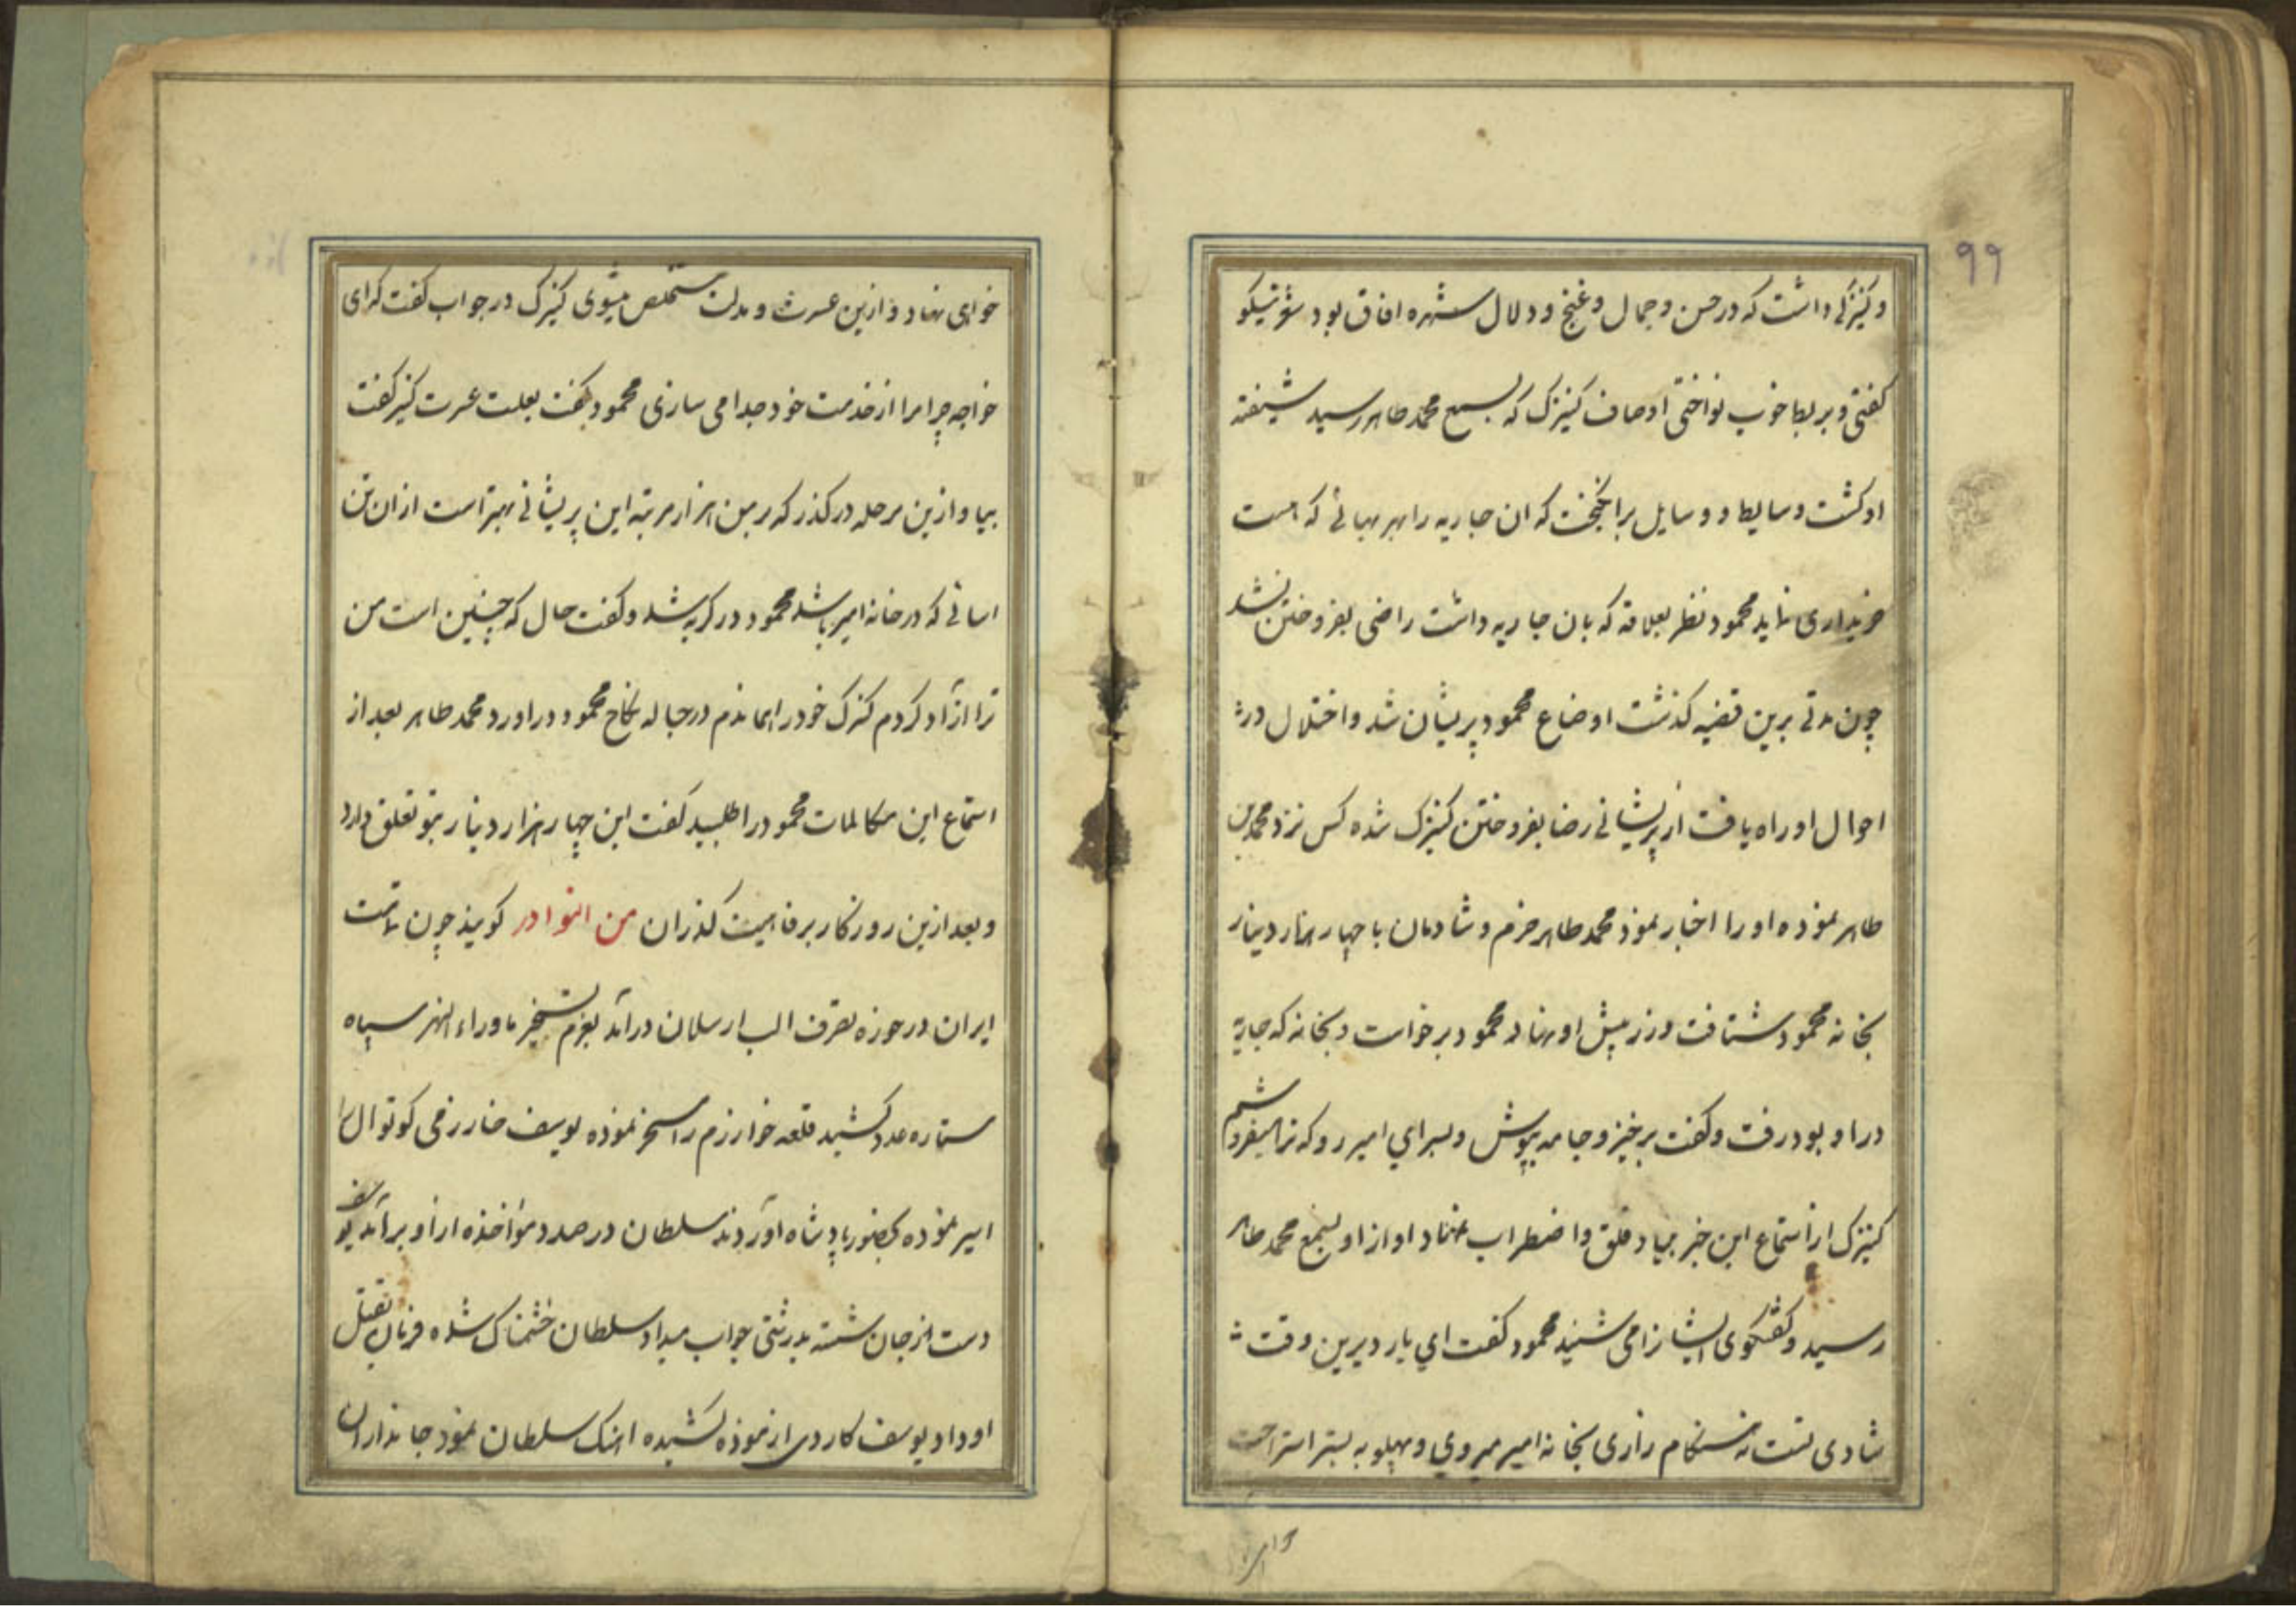 ۹۹
وکنیزکی داشت که در حسن و جمال و غنج و دلال شهره افاق بود شعر نیکو
کفتی و بربط خوب نواختی اوصاف کنیزک که بسمع محمد طاهر رسید شیفته
او کشت وسایط و وسایل برانکیخت که ان جاریه را بهر بهائی که هست
خریداری نماید محمود نظر بعلاقه که بان جاریه داشت راضی بفروختن نشد
چون مدتی برین قضیه کذشت اوضاع محمود پریشان شد و اختلال در
احوال او راه یافت از پریشانی رضا بفروختن کنیزک شده کس نزد محمد بن
طاهر نموده او را اخبار نمود محمد طاهر خرم و شادمان با چهار هزار دینار
بخانه محمود شتافت و زر پیش او نهاد محمود برخواست و بخانه که جاریه
در او بود رفت و کفت برخیز و جامه بپوش و بسرای امیر رو که ترا میفروشم
کنیزک از استماع این خبر بنیاد قلق و اضطراب نهاد اواز او بسمع محمد طاهر
رسید و کفتکوی ایشانرا می شنید محمود کفت ای یار دیرین وقت
شادی تست نه هنکام زاری بخانه امیر میروی و پهلو به بستر استراحت
خواهی نهاد و ازین عسرت و مذلت مستخلص میشوی کنیزک در جواب کفت که ای
خواجه چرا مرا از خدمت خود جدا می سازی محمود کفت بعلت عسرت کنیز کفت
بیا و ازین مرحله در کذر که بر من هزار مرتبه این پریشانی بهتر است از ان تن
اسانی که در خانه امیر باشد محمود در کریه شد و کفت حال که چنین است من
ترا ازاد کردم کنزک خود را هماندم در حباله نکاح محمود دراورد محمد طاهر بعد از
استماع این مکالمات محمود را طلبید کفت این چهار هزار دینار بتو تعلق دارد
و بعد ازین روزکار برفاهیت کذران من النوادر کویند چون تمامت
ایران در حوزه تصرف الب ارسلان درآمد بعزم تسخیر ماوراء النهر سپاه
ستاره عدد کشید قلعه خوارزم را مسخر نموده یوسف خارزمی کوتوال را
اسیر نموده بحضور پادشاه آوردند سلطان در صدد مؤاخذه از او برآمد یوسف
دست از جان شسته بدرشتی جواب میداد سلطان خشمناک شده فرمان بقتل
او داد یوسف کاردی از موزه کشیده اهنک سلطان نمود جانداران